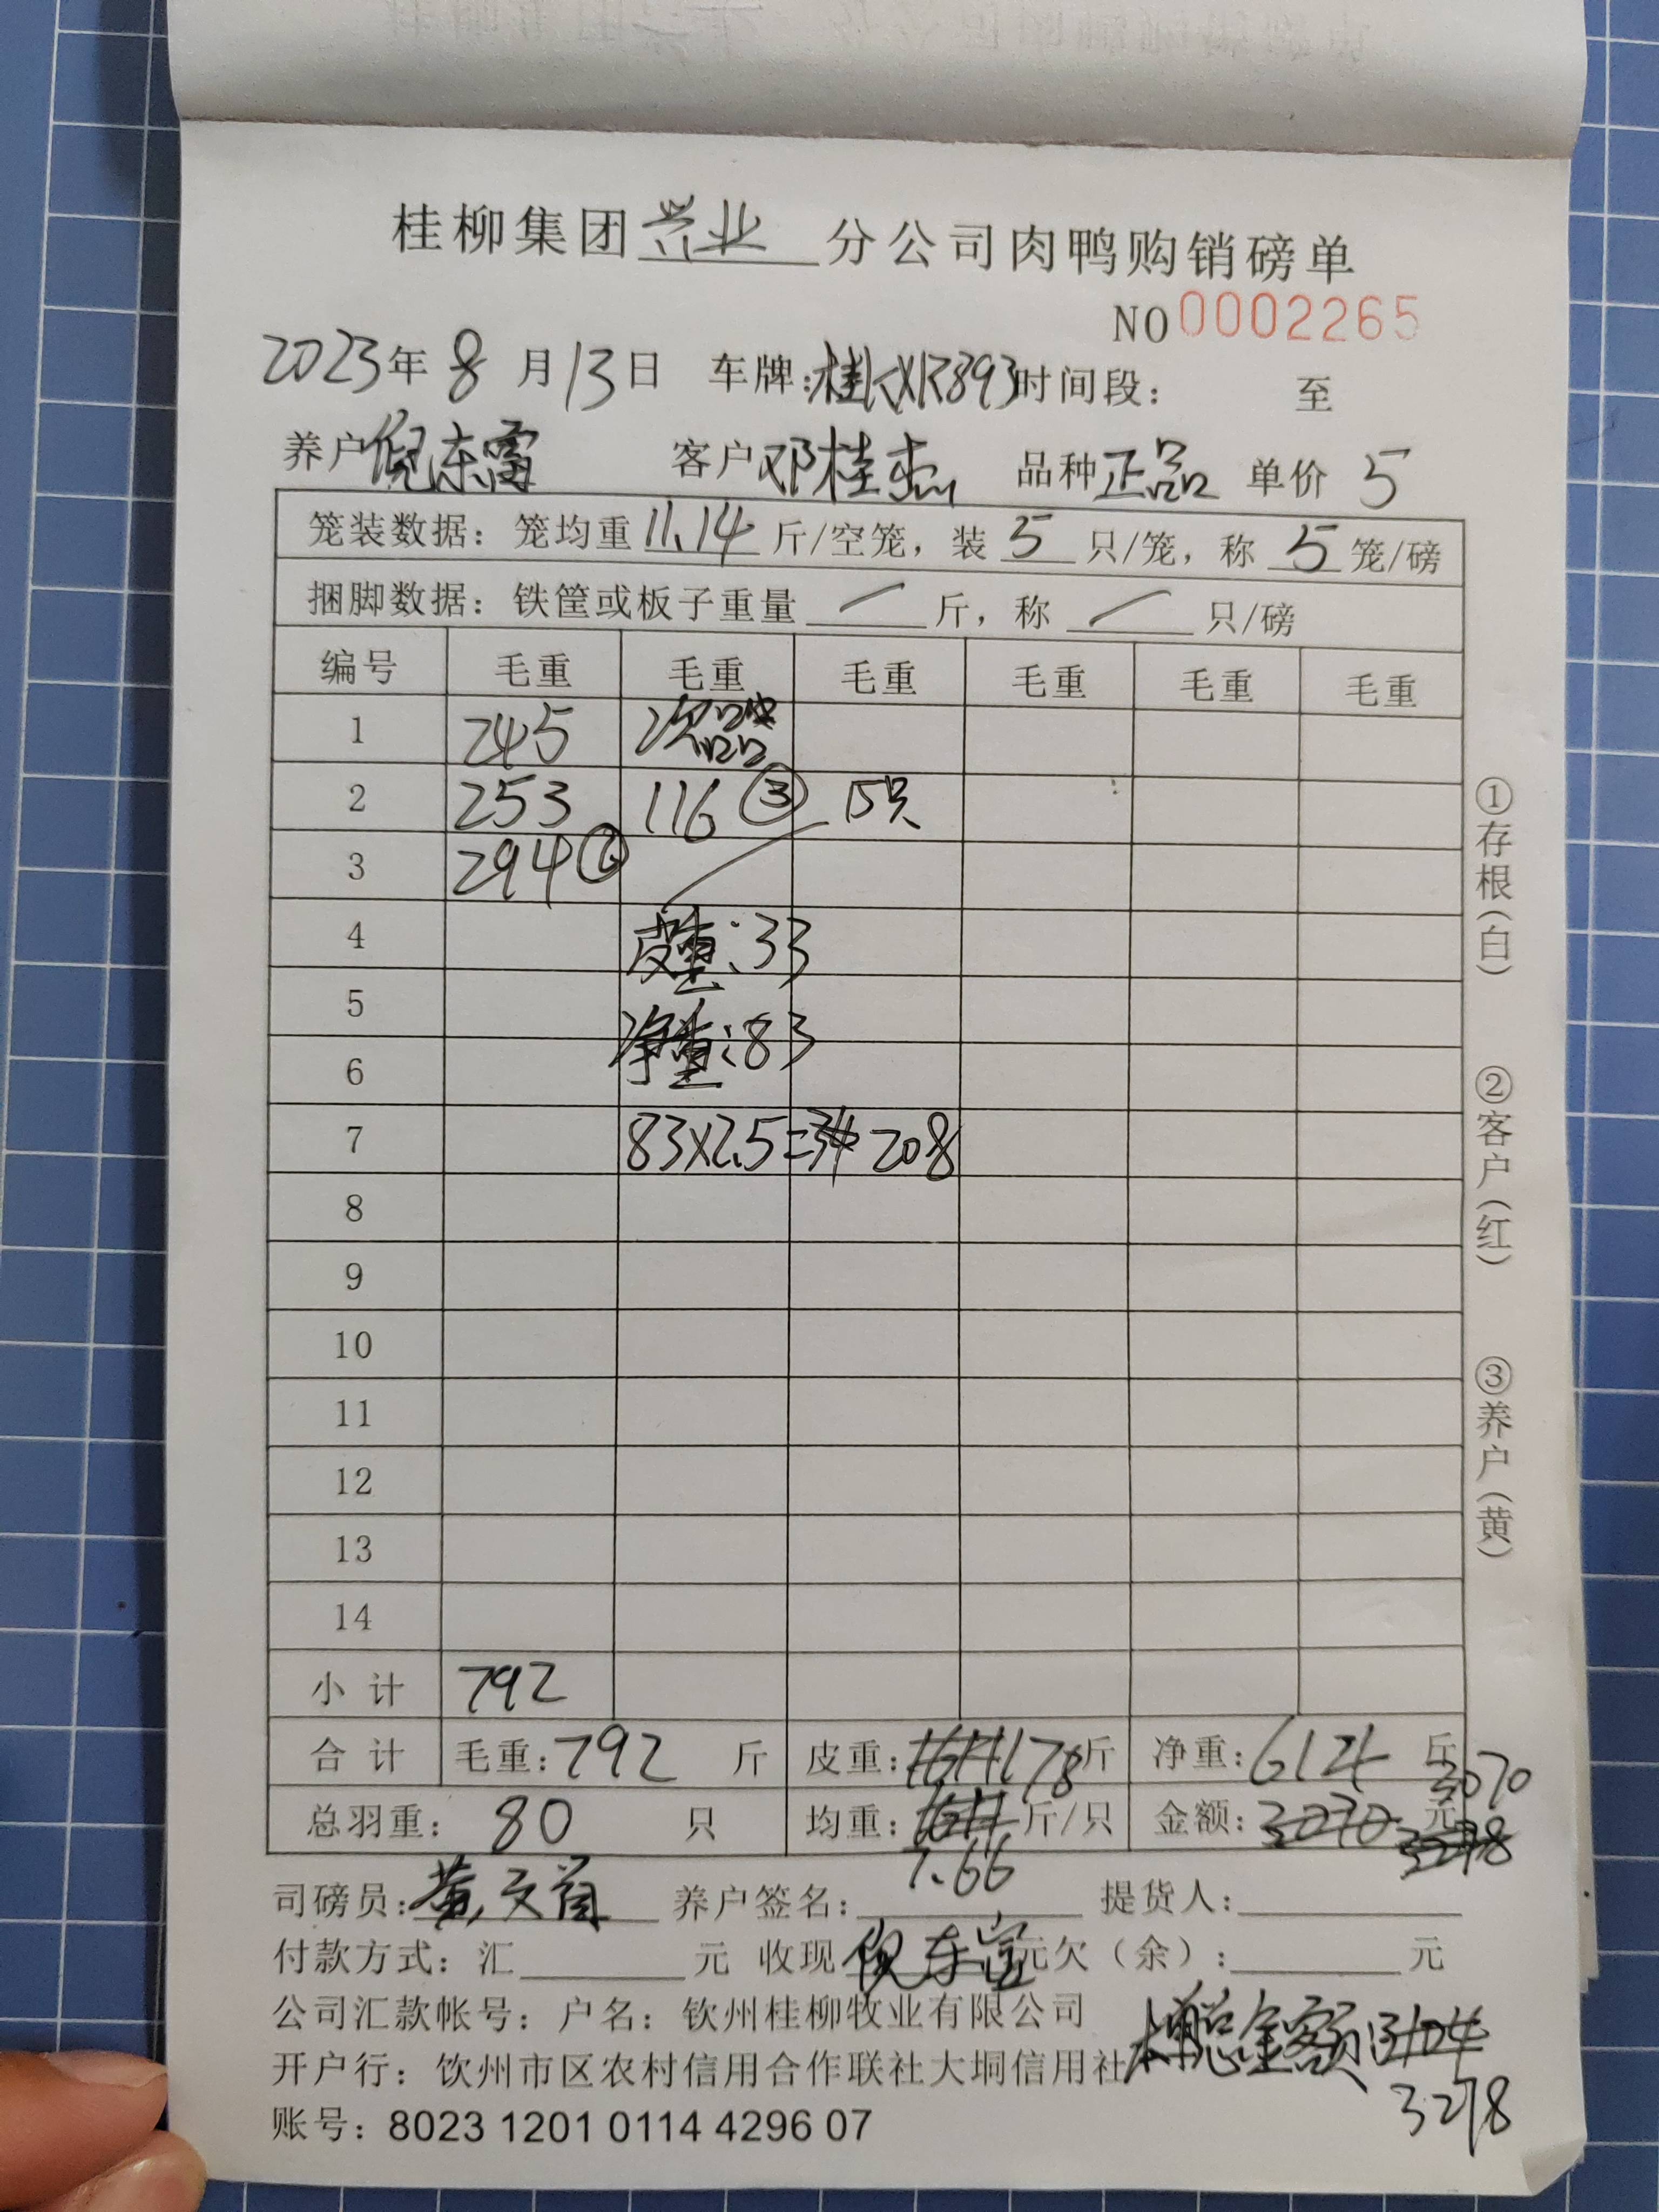 桂柳集团兴业分公司肉鸭购销磅单
NO 0002265
2023年8月13日 车牌:桂KXR893时间段: 至
养户倪东雷 客户邓桂杰 品种正品 单价5
笼装数据:笼均重11.14斤/空笼,装5只/笼,称5笼/磅
捆脚数据:铁筐或板子重量/斤,称/只/磅
编号 毛重 毛重 毛重 毛重 毛重 毛重
1 245 次品
2 253 116 ③ 15只
3 294 ⑥
4 皮重:33
5 净重:83
6
7 83×2.5= 208
8
9
10
11
12
13
14
小计 792
合计 毛重:792斤 皮重:178斤 净重:614斤
3070
总羽重:80只 均重:斤/只 金额:3070元
3278
7.66
司磅员:黄文 养户签名: 提货人:
付款方式:汇 元 收现 倪东 元欠(余): 元
公司汇款帐号:户名:钦州桂柳牧业有限公司
总金额:
开户行:钦州市区农村信用合作联社大垌信用社
3278
账号:8023 1201 0114 4296 07
①存根(白)
②客户(红)
③养户(黄)